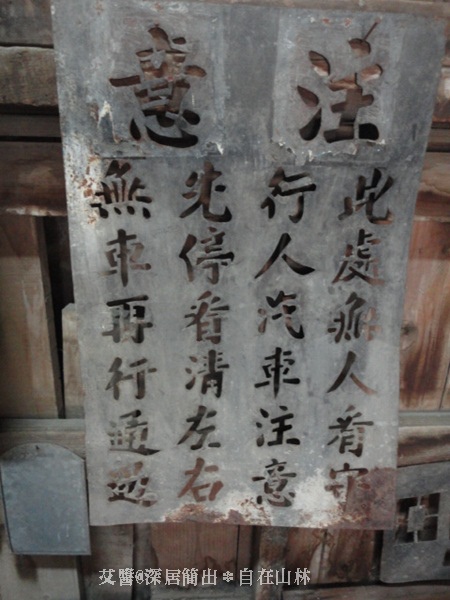 注意
此處無人看守
行人汽車注意
先停看清左右
無車再行通過
艾醬@深居簡出*自在山林